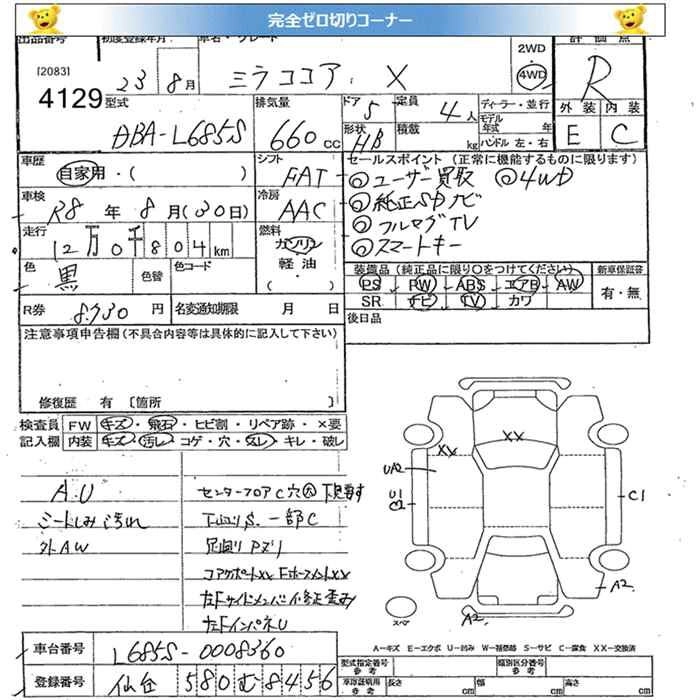 完全ゼロ切りコーナー
出品番号 初度登録年月 車名・グレード 2WD 4WD 評価点
[2083]
4129
23年 8月 ミラココア X R
型式 DBA-L685S 排気量 660cc ドア 5 定員 4人 ディーラー・並行
形状 HB 積載 kg モデル年式 年
ハンドル 左・右
外装 内装
E C
車歴 自家用・( ) シフト FAT
車検 R8年 8月(30日) 冷房 AAC
走行 12万0千804km 燃料 ガソリン 軽油・( )
色 黒 色替 色コード
R券 8,730円 名変通知期限 月 日
セールスポイント (正常に機能するものに限ります)
◎ユーザー買取 ◎4WD
◎純正SDナビ
◎フルセグTV
◎スマートキー
装備品 (純正品に限り○をつけてください) 新車保証書
PS PW ABS エアB AW 有・無
SR ナビ TV カワ
後日品
注意事項申告欄(不具合内容等は具体的に記入して下さい)
修復歴 有 〔箇所
検査員記入欄 FW キズ・飛石・ヒビ割・リペア跡・×要
内装 キズ・汚れ・コゲ・穴・スレ・キレ・破レ
A.U
シートしみ汚れ
外AW
センターフロアC穴大 下見要す
下廻りS、一部C
足廻りPズリ
コアサポートXX Fホースメントxx
左Fサイドメンバー修正歪み
左FインパネU
XX
XX
UA2
U1
C2
C1
A2
A2
スペア
A－キズ E－エクボ U－凹み W－補修跡 S－サビ C－腐食 XX－交換済
車台番号 L685S-0008360
登録番号 仙台 580 む 8456
型式指定番号 類別区分番号
車庫証明用参考 長さ cm 幅 cm 高さ cm